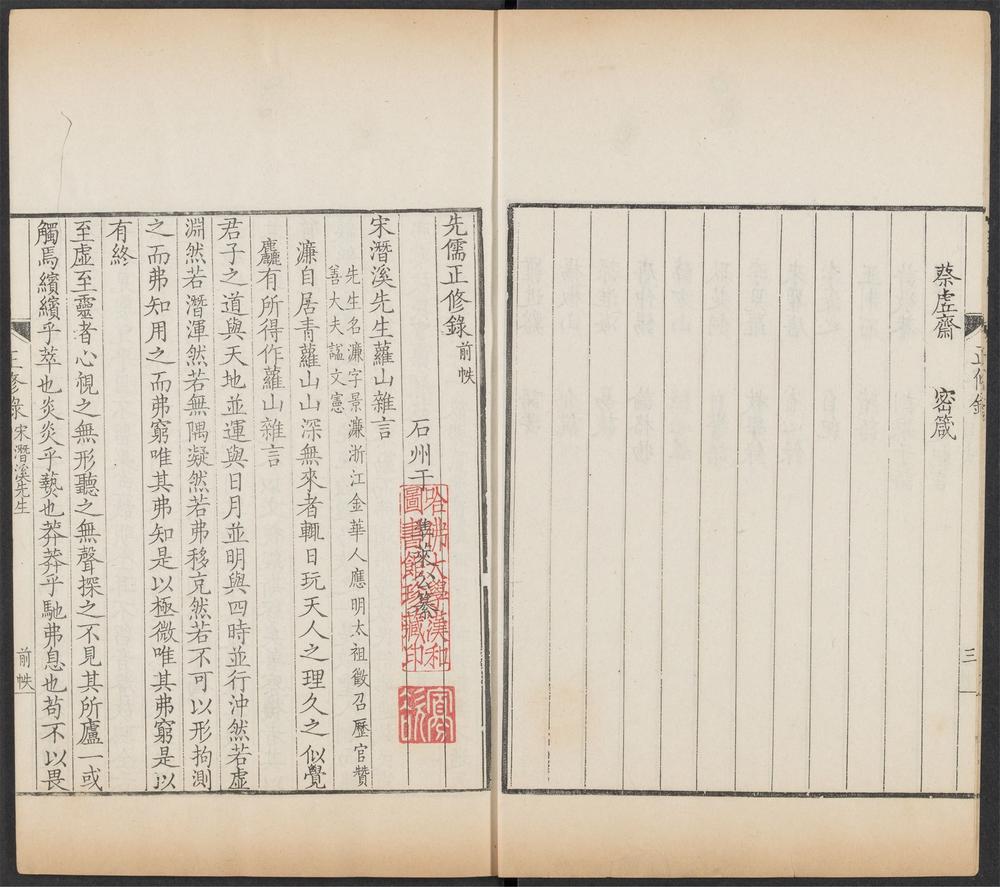 蔡虛齋 密箴
正修錄
三
先儒正修錄 前帙
石州于準來公纂
哈佛大學漢和
圖書館珍藏印
宋潛溪先生蘿山雜言
先生名濂字景濂浙江金華人應明太祖徵召歷官贊
善大夫諡文憲
濂自居青蘿山山深無來者輒日玩天人之理久之似覺
麤有所得作蘿山雜言
君子之道與天地並運與日月並明與四時並行沖然若虛
淵然若潛渾然若無隅凝然若弗移充然若不可以形拘測
之而弗知用之而弗窮唯其弗知是以極微唯其弗窮是以
有終
至虛至靈者心視之無形聽之無聲探之不見其所廬一或
觸焉繽繽乎萃也炎炎乎爇也莽莽乎馳弗息也苟不以畏
正修錄 宋潛溪先生 前帙